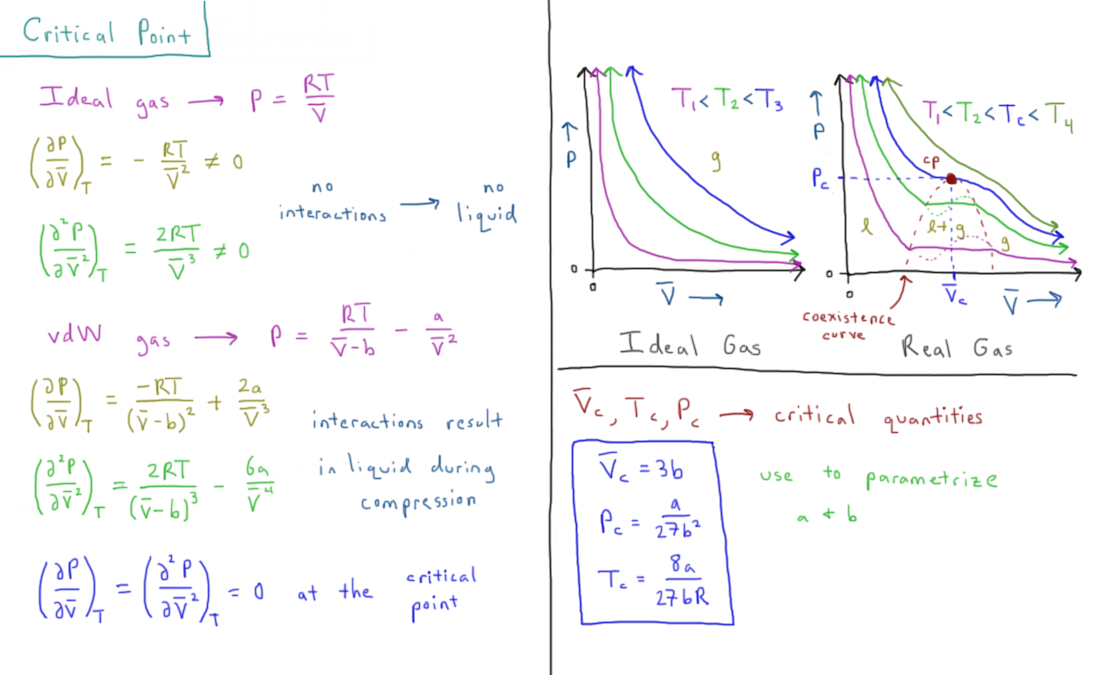 Critical Point
Ideal gas → P = RT/V̅
(∂P/∂V̅)_T = - RT/V̅² ≠ 0
no interactions → no liquid
(∂²P/∂V̅²)_T = 2RT/V̅³ ≠ 0
vdW gas → P = RT/(V̅-b) - a/V̅²
(∂P/∂V̅)_T = -RT/(V̅-b)² + 2a/V̅³
(∂²P/∂V̅²)_T = 2RT/(V̅-b)³ - 6a/V̅⁴
interactions result
in liquid during
compression
(∂P/∂V̅)_T = (∂²P/∂V̅²)_T = 0 at the critical point
↑
P
T₁<T₂<T₃
g
0
0
V̅ →
Ideal Gas
↑
P
T₁<T₂<T_c<T₄
cp
P_c
l
l+g
g
0
0
V̅_c
V̅ →
coexistence
curve
Real Gas
V̅_c, T_c, P_c → critical quantities
V̅_c = 3b
P_c = a/27b²
T_c = 8a/27bR
use to parametrize
a + b